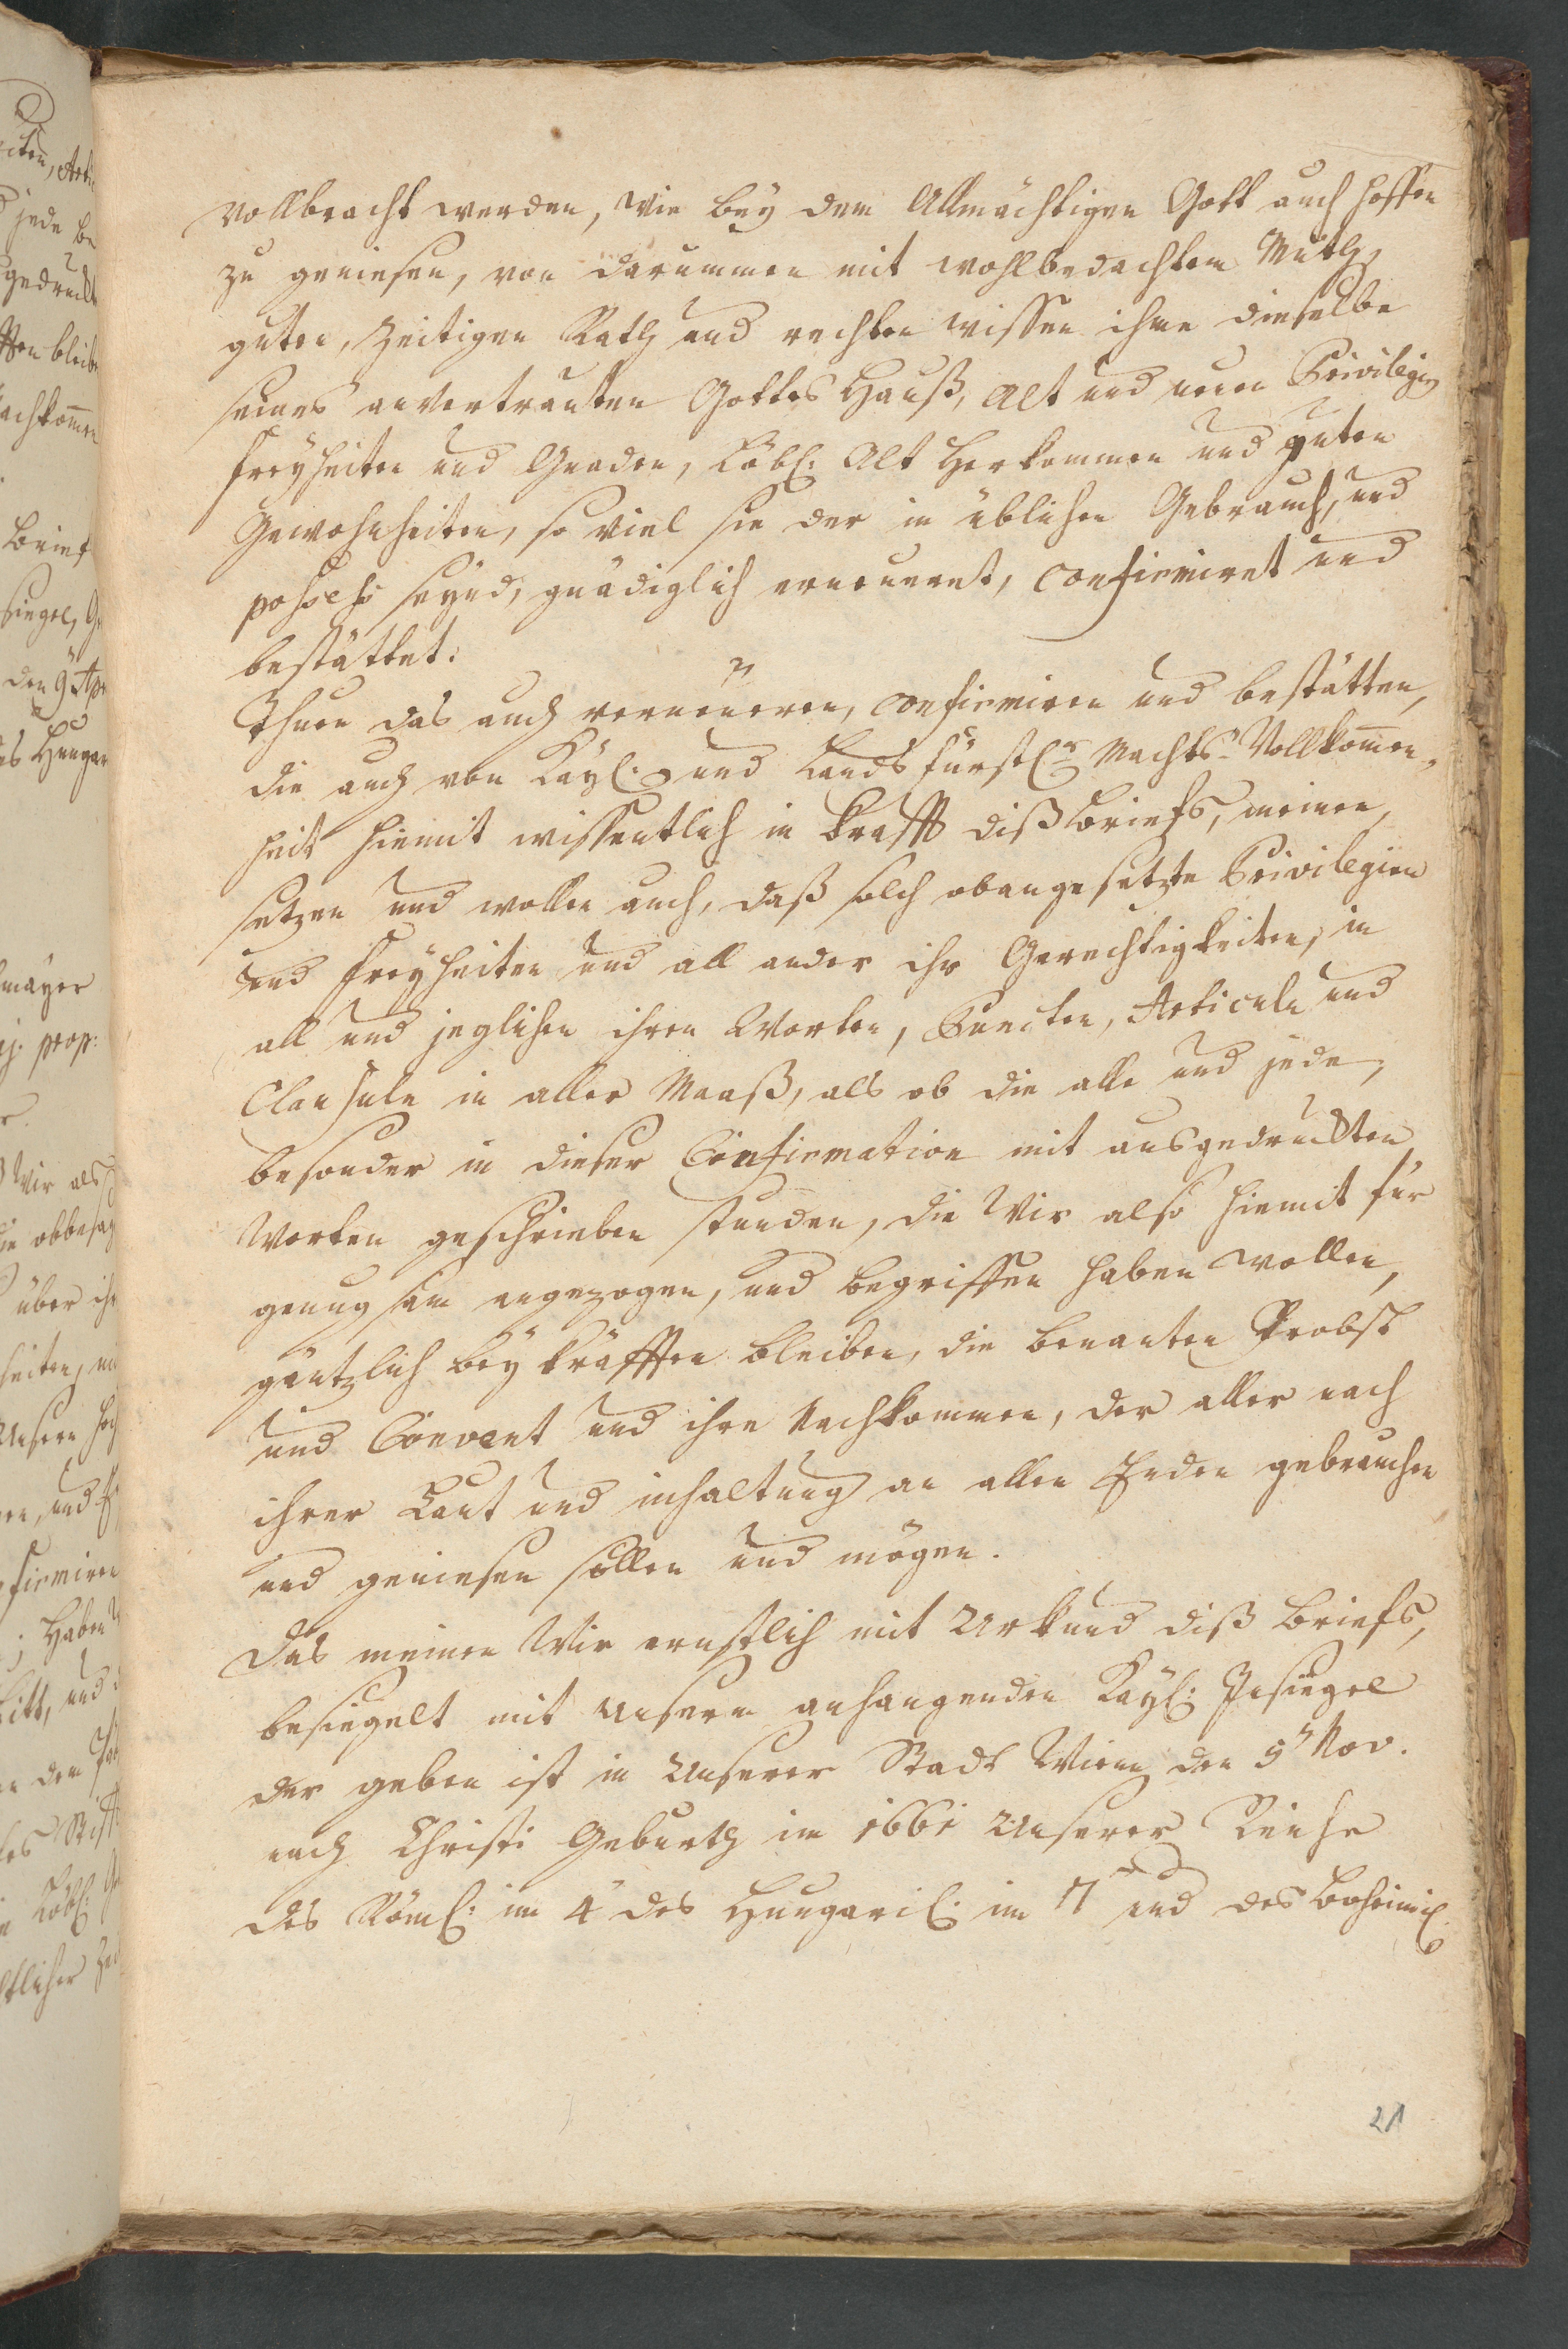 vollbracht werden, wie bey dem Allmächtigen Gott auch hoffen
zu geniesen, von darummen mit wohlbedachtem Muth,
guten, zeitigen Rath und rechten wissen ihme dieselbe
seines anvertrauten Gottes Hauß, Alt und neue Privilegien
freyheiten und Gnaden, Löbl: Alt Herkommen und guten
Gewohnheiten, so viel sie der in üblichen Gebrauch, und
possess seynd, gnädiglich erneueret, confirmiret und
bestättet:
Thuen das auch verneueren, confirmiren und bestätten,
die auch von Kayl: und Landsfürstlr Machts-Vollkomen,,
heit hiemit wissentlich in krafft diß briefs, meinen,
setzen und wollen auch, daß solch obangesetzte Privilegien
und freyheiten und all ander ihr Gerechtigkeiten, in
all und jeglichen ihren Worten, Puncten, Articuln und
Clausuln in aller Maaß, als ob die alle und jede,
besonder in dieser Confirmation mit ausgedruckten
Worten geschrieben stunden, die Wir also hiemit für
genugsam angezogen, und begriffen haben wollen,
gäntzlich bey kräfften bleiben, die benanten Probst
und Convent und ihre Nachkommen, der aller nach
ihrer Laut und inhaltung an allen Enden gebrauchen
und geniesen sollen und mögen.
Das meinen Wir ernstlich mit Urkund diß briefs,
besiegelt mit unserm anhangenden Kayl: Insiegel
der geben ist in Unserer Stadt Wienn den 9n Nov.
nach Christi Geburth im 1661 Unserer Reiche
des Röml: im 4n des Hungaril: im 7n und des boheimil:
21